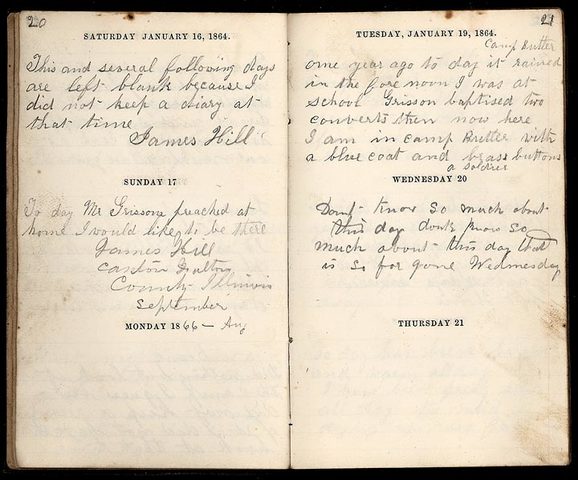 20
SATURDAY JANUARY 16, 1864.
This and several following days
are left blank because I
did not keep a diary at
that time
James Hill
SUNDAY 17
To day Mr Grissom preached at
home I would like to be there
James Hill
Canton Fulton
County Illinois
September
MONDAY 1866 - Aug
21
TUESDAY, JANUARY 19, 1864.
Camp Butler
one year ago to day it rained
in the fore noon I was at
school Grisson baptised two
converts then now here
I am in camp Butler with
a blue coat and brass buttons
a soldier
WEDNESDAY 20
Dont know so much about
this day dont know so
much about this day that
is so far gone Wednesday
THURSDAY 21